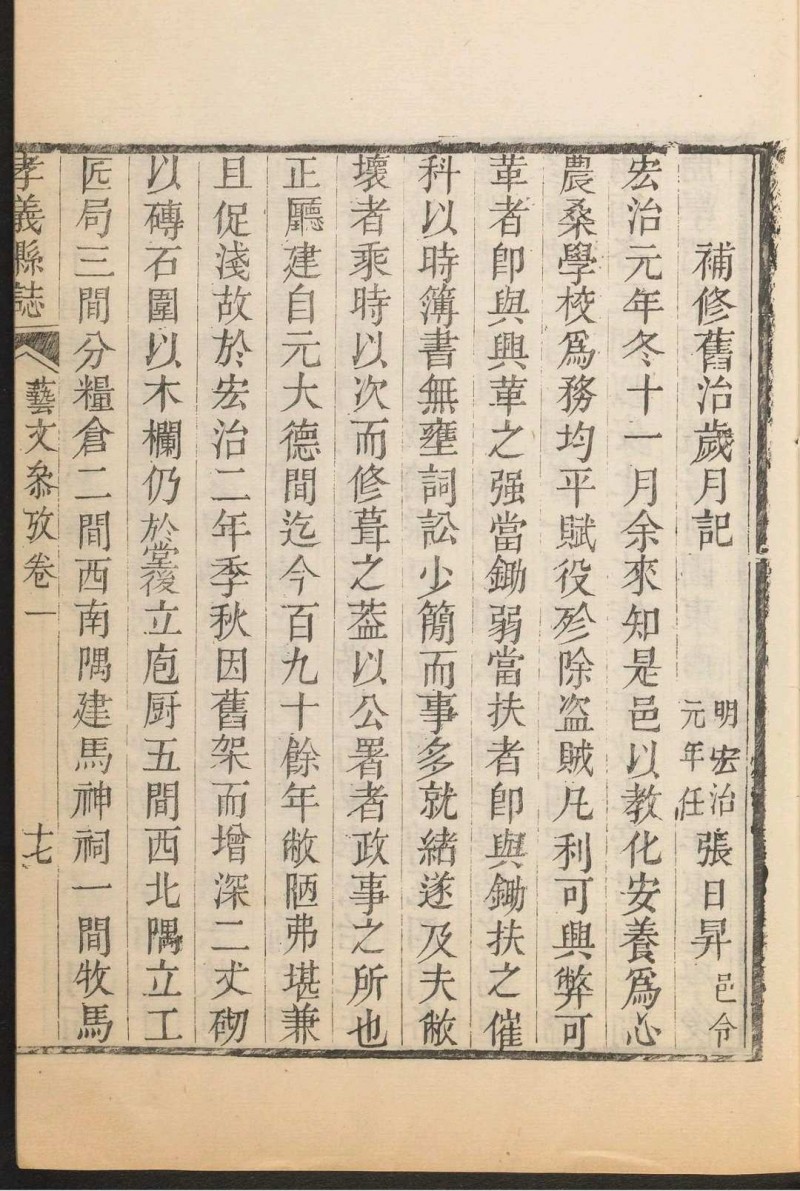 補修舊治歲月記 明宏治元年任 張日昇 邑令
宏治元年冬十一月余來知是邑以教化安養爲心
農桑學校爲務均平賦役殄除盜賊凡利可興弊可
革者卽與興革之强當鋤弱當扶者卽與鋤扶之催
科以時簿書無壅詞訟少簡而事多就緒遂及夫敝
壞者乘時以次而修葺之葢以公署者政事之所也
正廳建自元大德間迄今百九十餘年敝陋弗堪兼
且促淺故於宏治二年季秋因舊架而增深二丈砌
以磚石圍以木欄仍於堂後立庖厨五間西北隅立工
匠局三間分糧倉二間西南隅建馬神祠一間牧馬
孝義縣誌 藝文叅攷卷一 十七